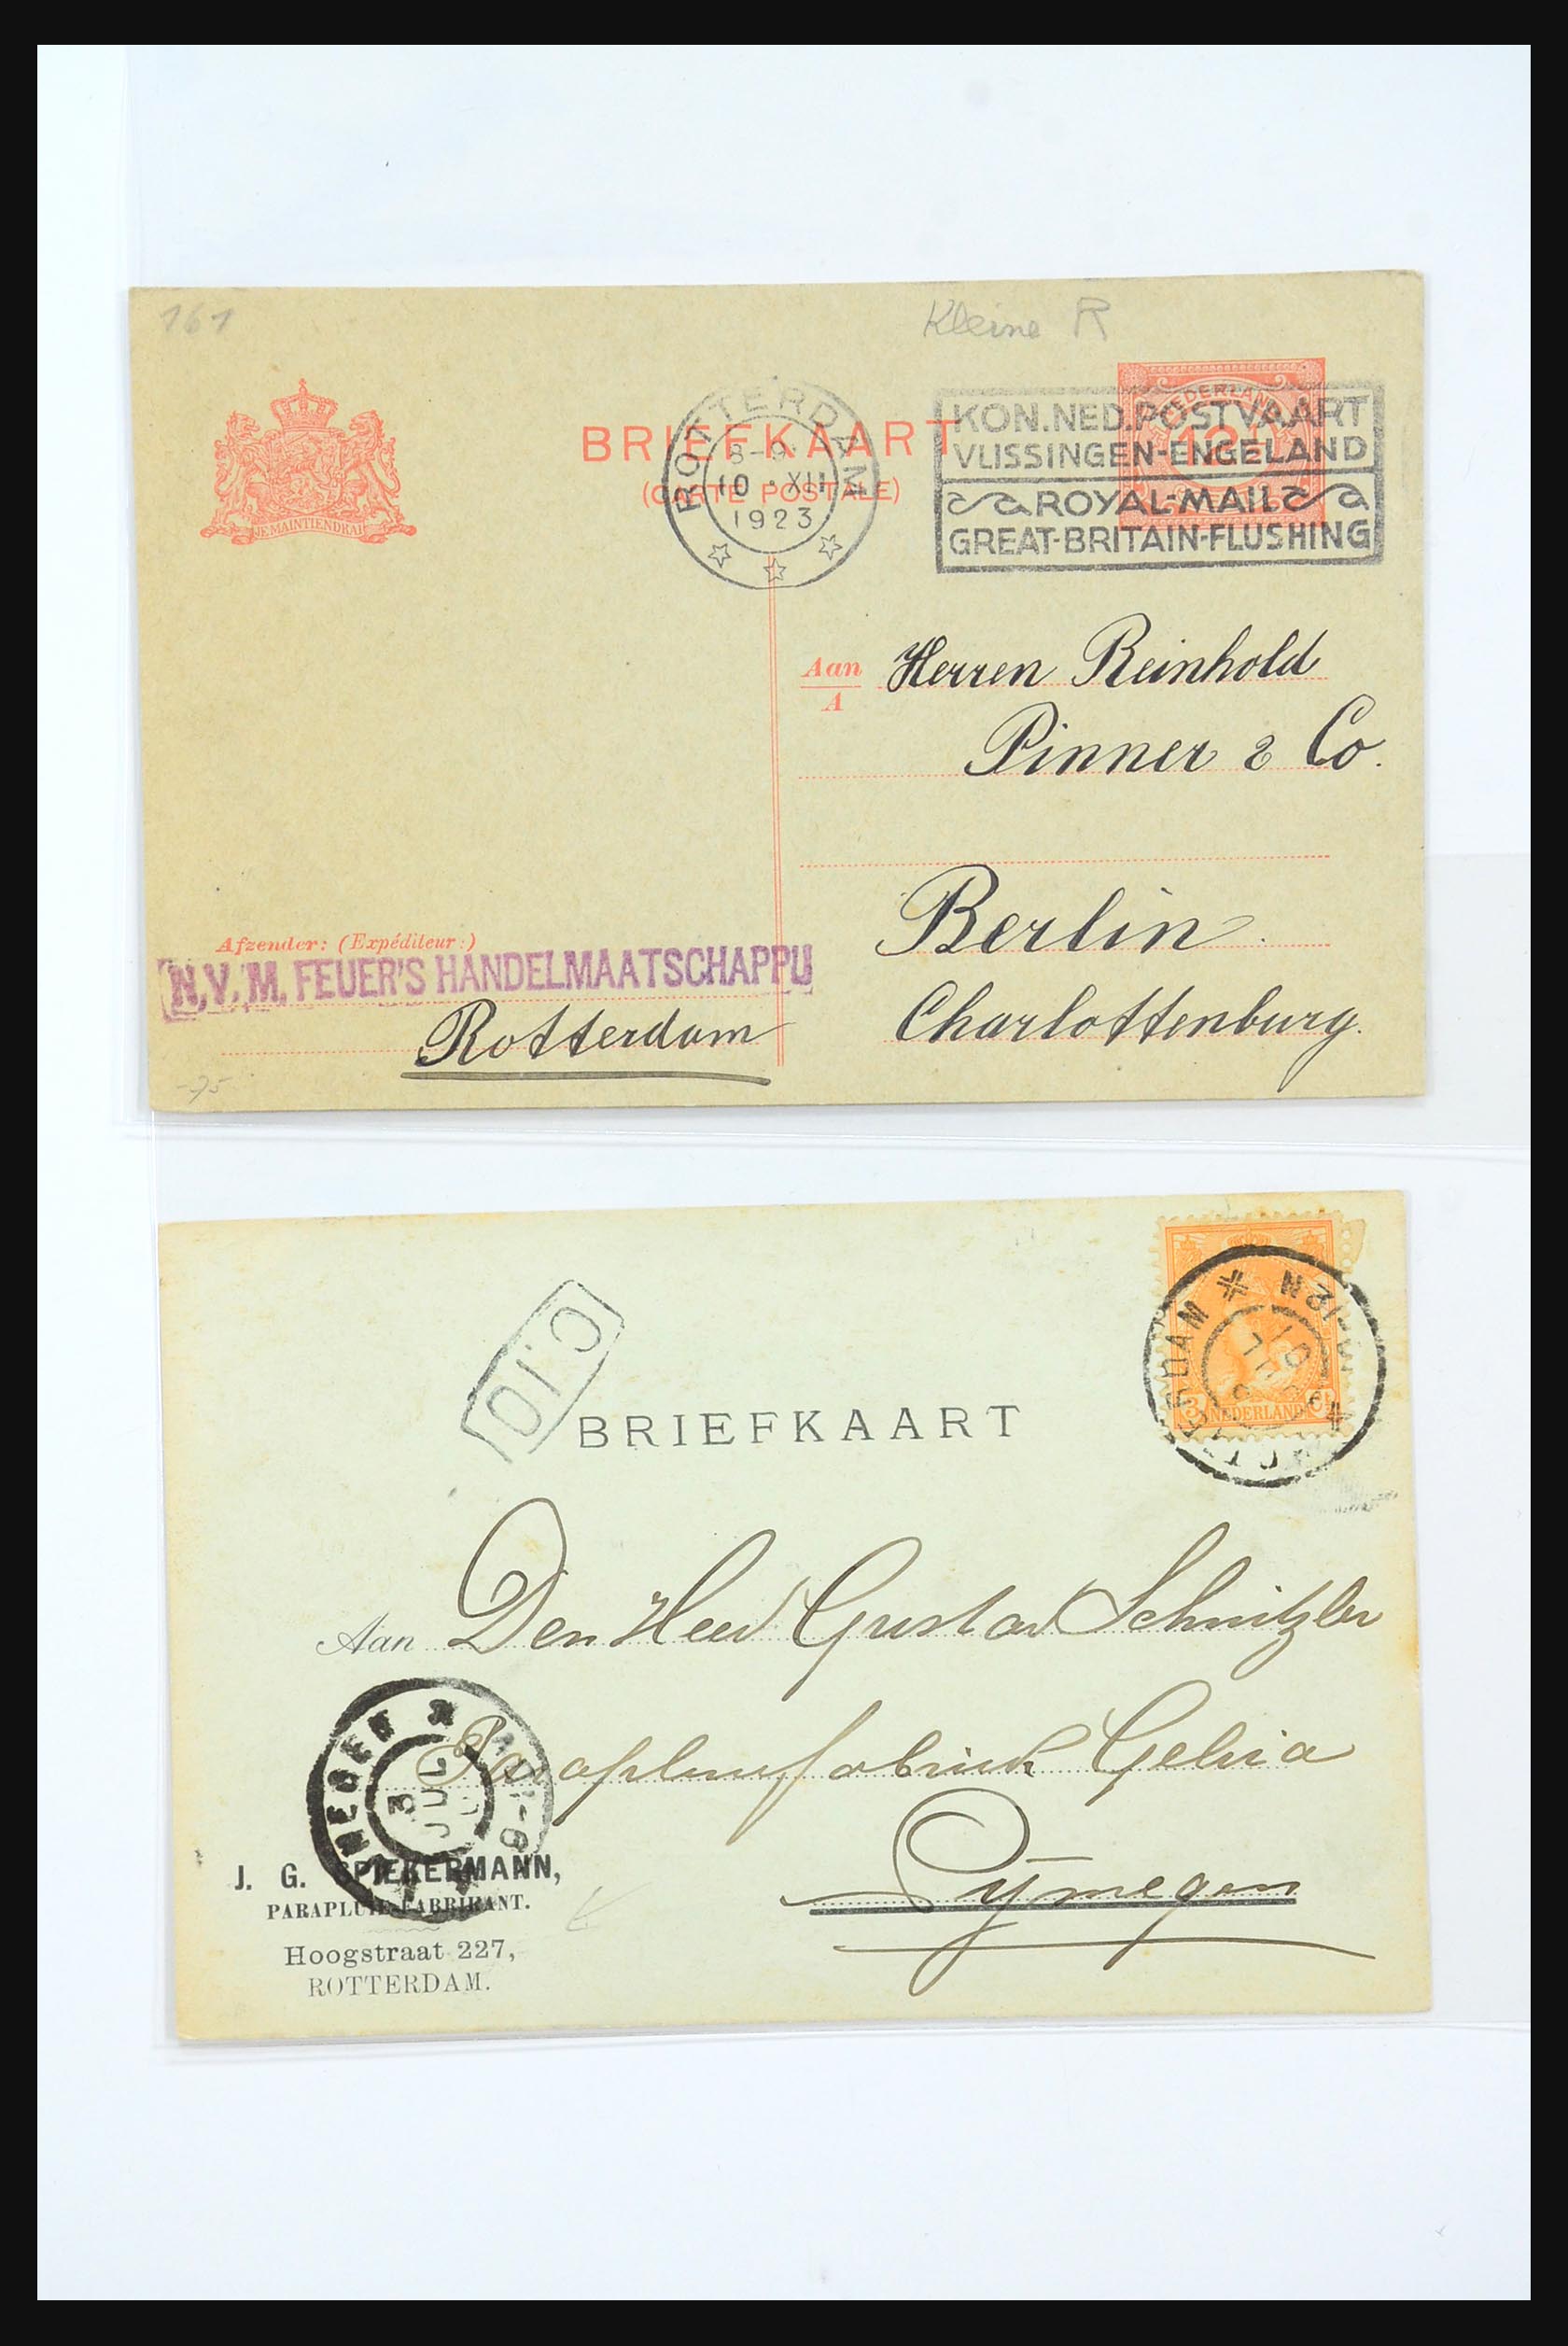 161
Kleine R
NEDERLAND
12½
BRIEFKAART
(CARTE POSTALE)
ROTTERDAM
8-9.
10 · XII
1923
KON.NED.POSTVAART
VLISSINGEN-ENGELAND
ROYAL-MAIL
GREAT-BRITAIN-FLUSHING
JE MAINTIENDRAI
Aan
A
Herren Reinhold
Pinner & Co.
Berlin.
Charlottenburg.
Afzender: (Expéditeur:)
N.V. M. FEUER'S HANDELMAATSCHAPPIJ
Rotterdam
-75
C.10
3 NEDERLAND Ct
3 JUL
BRIEFKAART
Aan Den Heer Gustav Schnitzler
Parapluiefabriek Gelria
Nymegen
3
JUL
J. G. SPIEKERMANN,
PARAPLUIE-FABRIKANT.
Hoogstraat 227,
ROTTERDAM.